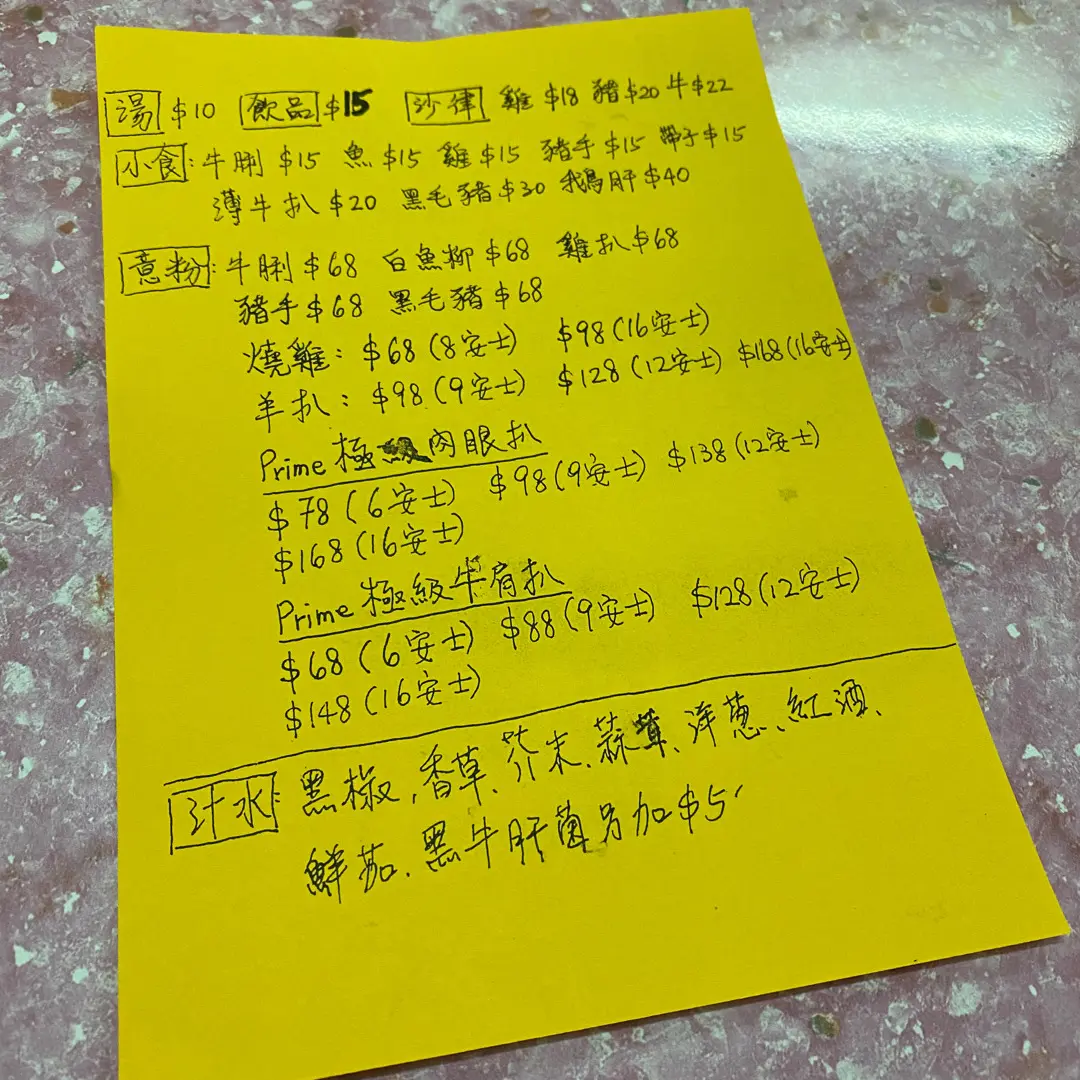 湯 $10 飲品 $15 沙律 雞 $18 豬 $20 牛 $22
小食: 牛脷 $15 魚 $15 雞 $15 豬手 $15 帶子 $15
薄牛扒 $20 黑毛豬 $30 鵝肝 $40
意粉: 牛脷 $68 白魚柳 $68 雞扒 $68
豬手 $68 黑毛豬 $68
燒雞: $68 (8安士) $98 (16安士)
羊扒: $98 (9安士) $128 (12安士) $168 (16安士)
Prime 極級肉眼扒
$78 (6安士) $98 (9安士) $138 (12安士)
$168 (16安士)
Prime 極級牛肩扒
$68 (6安士) $88 (9安士) $128 (12安士)
$148 (16安士)
汁水: 黑椒,香草、芥末、蒜茸、洋蔥、紅酒、
鮮茄、黑牛肝菌另加$5